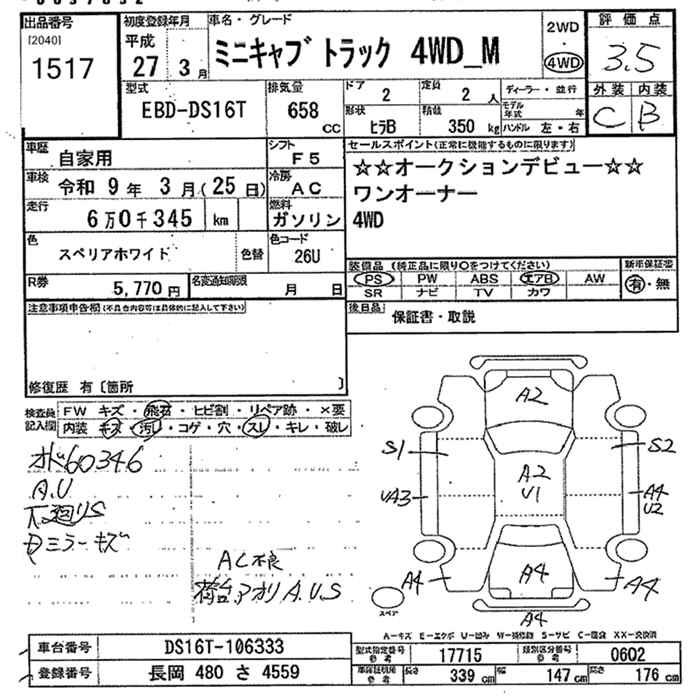 出品番号
[2040]
1517
初度登録年月
平成
27 3月
車名・グレード
ミニキャブ トラック 4WD_M
2WD
・
4WD
評価点
3.5
外装 内装
C B
型式
EBD-DS16T
排気量
658 CC
ドア
2
定員
2 人
形状
ヒラB
積載
350 kg
ディーラー・並行
モデル年式 年
ハンドル 左・右
車歴
自家用
シフト
F5
車検
令和 9年 3月(25日)
冷房
AC
走行
6万0千345 km
燃料
ガソリン
色
スペリアホワイト
色替
色コード
26U
R券
5,770円
名変通知期限
月 日
セールスポイント(正常に機能するものに限ります)
☆☆オークションデビュー☆☆
ワンオーナー
4WD
装備品(純正品に限り○をつけてください)
PS PW ABS エアB AW
SR ナビ TV カワ
新車保証書
有・無
後日品
保証書・取説
注意事項申告欄(不具合内容等は具体的に記入して下さい)
修復歴 有〔箇所 〕
検査員記入欄
FW キズ・飛石・ヒビ割・リペア跡・×要
内装 キズ・汚レ・コゲ・穴・スレ・キレ・破レ
オド60346
A.U
下廻りS
Dミラーキズ
AC不良
荷台アオリA.U.S
A2
S1
S2
A2
U1
UA3
A4
U2
A4
A4
A4
A4
スペア
A－キズ E－エクボ U－凹み W－補修跡 S－サビ C－腐食 XX－交換済
車台番号
DS16T-106333
登録番号
長岡 480 さ 4559
型式指定番号
参考
17715
類別区分番号
参考
0602
車庫証明用
参考
長さ 339 cm
幅 147 cm
高さ 176 cm